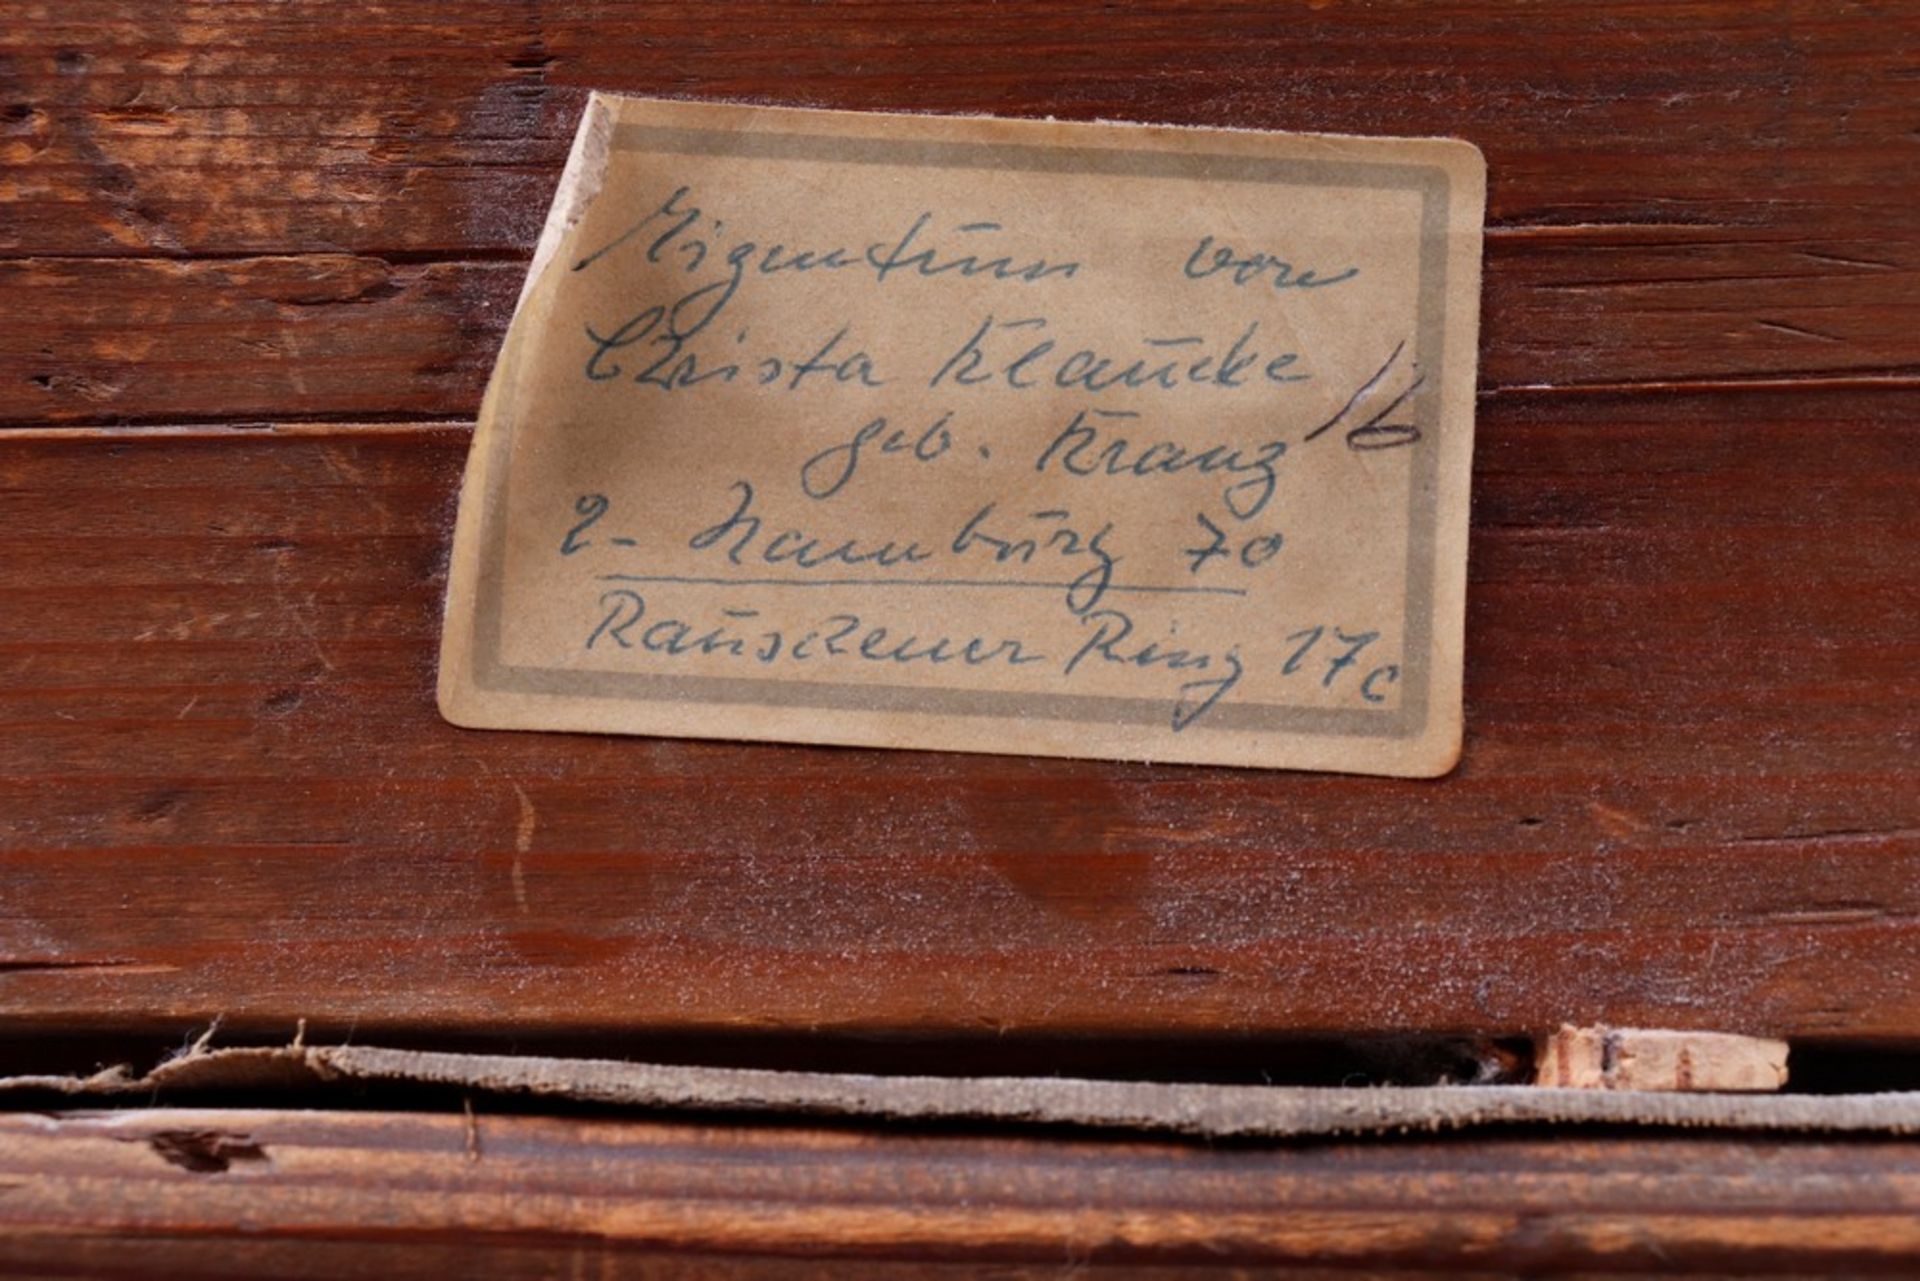 Eigentum von
Christa Klaucke
16
geb. Kranz
2- Hamburg 70
Rauschener Ring 17c